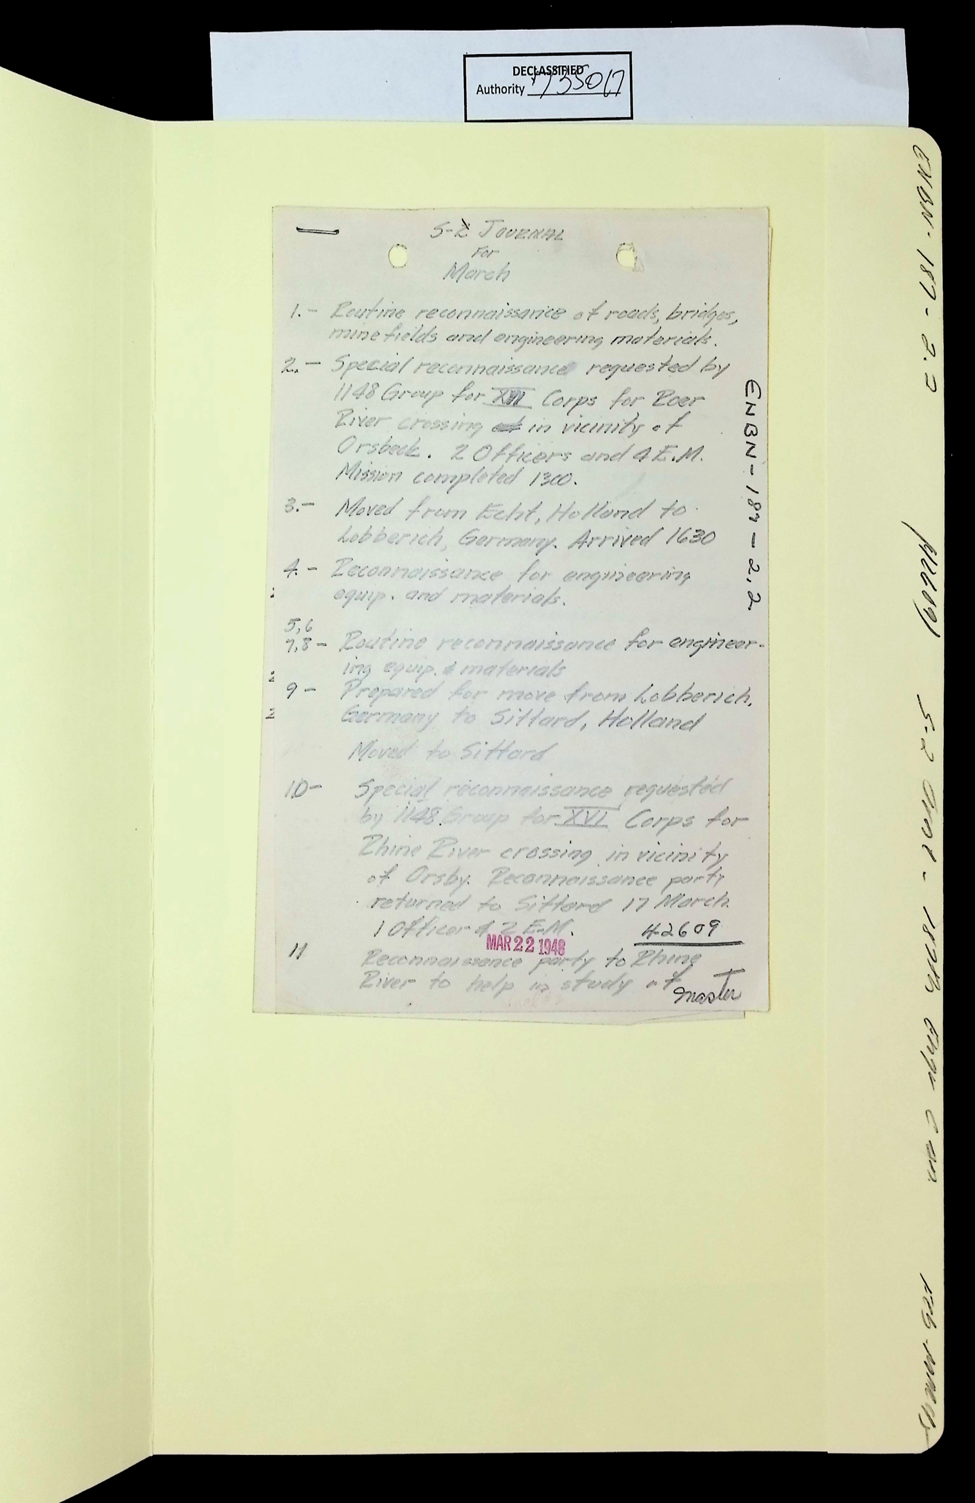 DECLASSIFIED
Authority 735017
S-2 JOURNAL
For
March
1.- Routine reconnaissance of roads, bridges,
mine fields and engineering materials.
2.- Special reconnaissance requested by
1148 Group for XVI Corps for Roer
River crossing in vicinity of
Orsbeck. 2 Officers and 4 E.M.
Mission completed 1300.
3.- Moved from Echt, Holland to
Lobberich, Germany. Arrived 1630
4.- Reconnaissance for engineering
equip. and materials.
5,6
7,8- Routine reconnaissance for engineer-
ing equip. & materials
9- Prepared for move from Lobberich,
Germany to Sittard, Holland
Moved to Sittard
10- Special reconnaissance requested
by 1148 Group for XVI Corps for
Rhine River crossing in vicinity
of Orsby. Reconnaissance party
returned to Sittard 17 March
1 Officer & 2 E.M.
42609
MAR 22 1948
11 Reconnaissance party to Rhine
River to help in study of
Master
ENBN-187-2.2
ENBN-187-2.2
S-2 Jrnl - 187th Engr C Bn